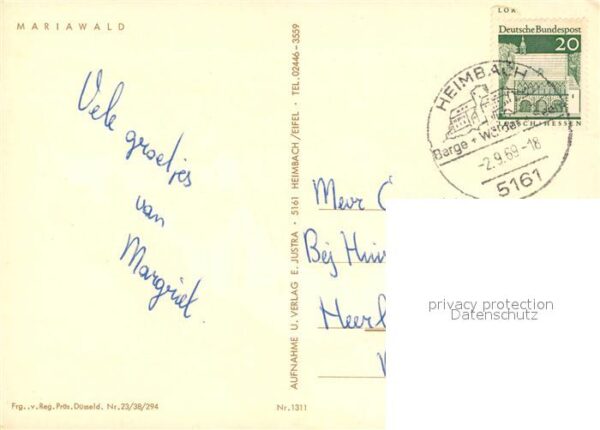 MARIAWALD
Vele
groetjes
van
Margriet.
AUFNAHME U. VERLAG E. JUSTRA · 5161 HEIMBACH/EIFEL · TEL. 02446-3559
Deutsche Bundespost
20
HEIMBACH
-2.9.69-18
5161
Mevr
Bej
Heerl
privacy protection
Datenschutz
Frg..v.Reg.Präs.Düsseld. Nr.23/38/294
Nr.1311